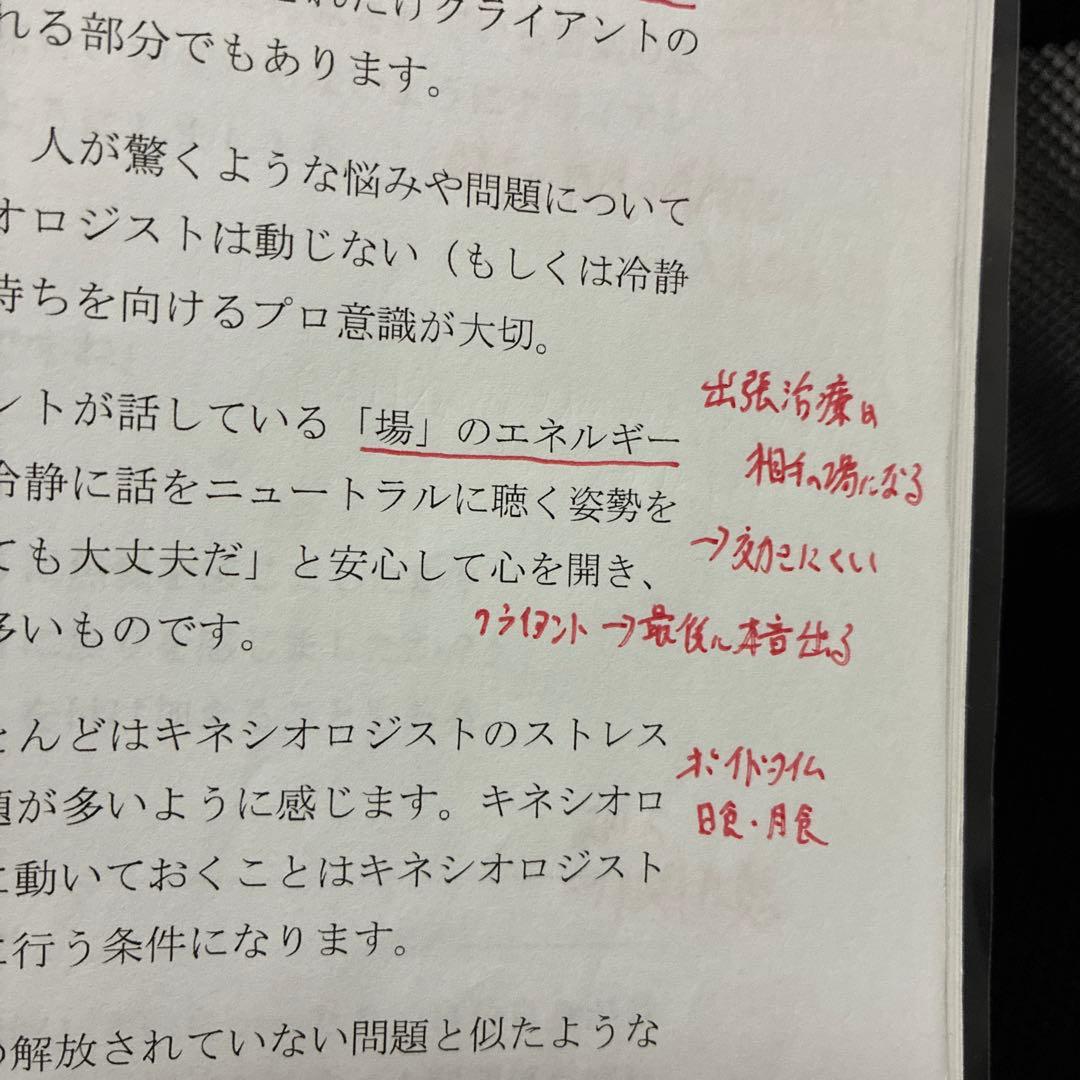 れだけクライアントの
れる部分でもあります。
人が驚くような悩みや問題について
オロジストは動じない（もしくは冷静
持ちを向けるプロ意識が大切。
ントが話している「場」のエネルギー
冷静に話をニュートラルに聴く姿勢を
ても大丈夫だ」と安心して心を開き、
多いものです。
とんどはキネシオロジストのストレス
題が多いように感じます。キネシオロ
に動いておくことはキネシオロジスト
に行う条件になります。
解放されていない問題と似たような
出張治療は
相手の場になる
→効きにくい
クライアント→最後に本音出る
ボイドタイム
日食・月食